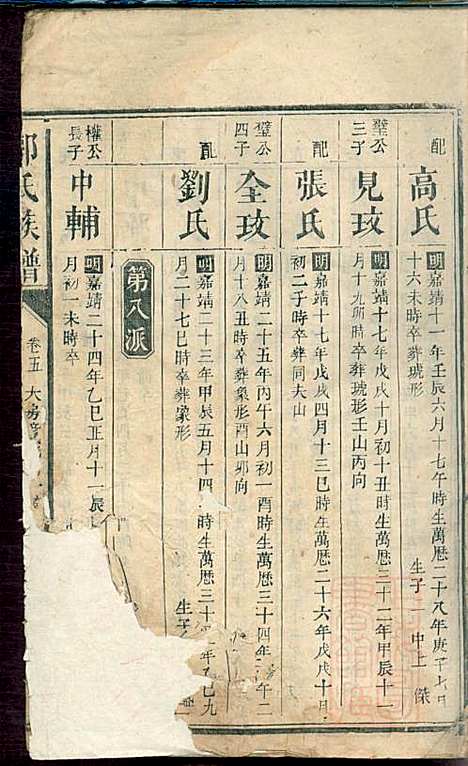 配
高氏
明嘉靖十一年壬辰六月十七午時生萬歷二十八年庚子七月
十六未時卒葬琥形
生子二
中上
傑
璧公
三子
見玟
明嘉靖十七年戊戌十月初十丑時生萬歷三十二年甲辰十一
月十九卯時卒葬琥形壬山丙向
配
張氏
明嘉靖十七年戊戌四月十三巳時生萬歷二十六年戊戌十月
初二子時卒葬同夫山
璧公
四子
全玟
明嘉靖二十五年丙午六月初一酉時生萬歷三十四年 午二
月十八丑時卒葬象形酉山卯向
配
劉氏
明嘉靖二十三年甲辰五月十四 時生萬歷三十 年乙巳九
月二十七巳時卒葬象形
生子
第八派
權公
長子
中輔
明嘉靖二十四年乙巳正月十一辰
月初一未時卒
氏族譜
卷五
大房